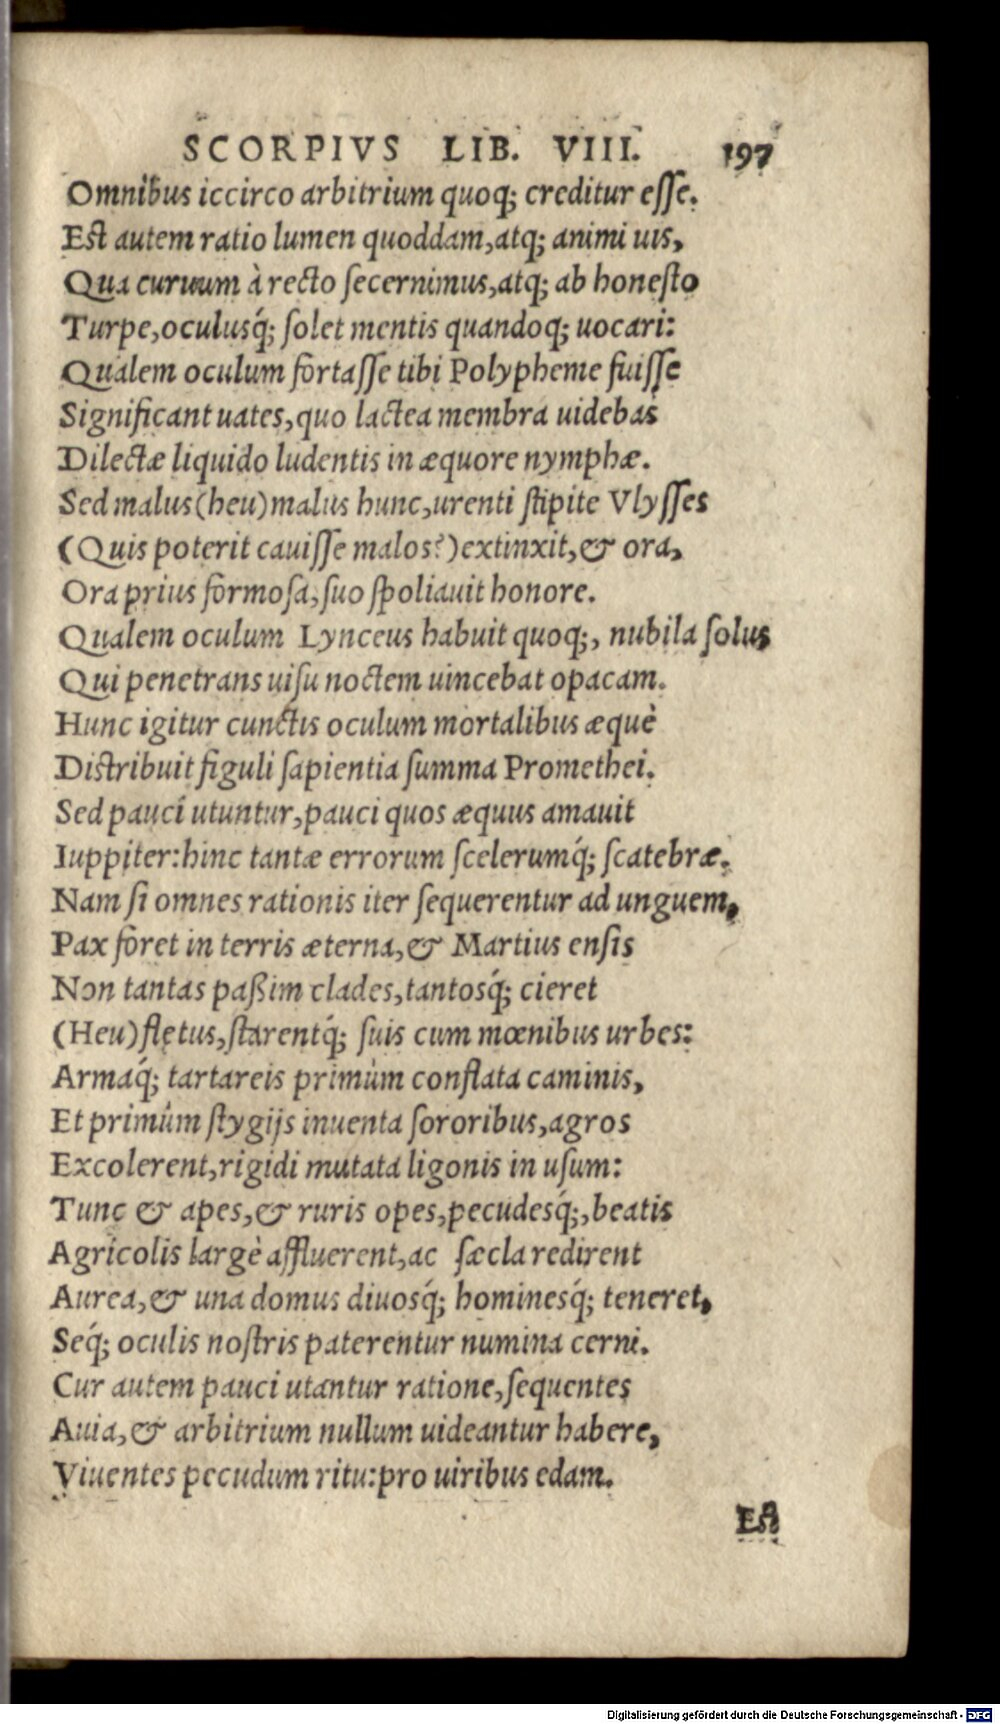 SCORPIVS LIB. VIII. 197
Omnibus iccirco arbitrium quoq; creditur esse.
Est autem ratio lumen quoddam, atq; animi uis,
Qua curuum à recto secernimus, atq; ab honesto
Turpe, oculusq́; solet mentis quandoq; uocari:
Qualem oculum fortasse tibi Polypheme fuisse
Significant uates, quo lactea membra uidebas
Dilectæ liquido ludentis in æquore nymphæ.
Sed malus (heu) malus hunc, urenti stipite Vlysses
(Quis poterit cauisse malos?) extinxit, & ora,
Ora prius formosa, suo spoliauit honore.
Qualem oculum Lynceus habuit quoq;, nubila solus
Qui penetrans uisu noctem uincebat opacam.
Hunc igitur cunctis oculum mortalibus æquè
Distribuit figuli sapientia summa Promethei.
Sed pauci utuntur, pauci quos æquus amauit
Iuppiter: hinc tantæ errorum scelerumq́; scatebræ.
Nam si omnes rationis iter sequerentur ad unguem,
Pax foret in terris æterna, & Martius ensis
Non tantas paßim clades, tantosq́; cieret
(Heu) fletus, starentq́; suis cum mœnibus urbes:
Armaq́; tartareis primùm conflata caminis,
Et primùm stygijs inuenta sororibus, agros
Excolerent, rigidi mutata ligonis in usum:
Tunc & apes, & ruris opes, pecudesq́;, beatis
Agricolis largè affluerent, ac sæcla redirent
Aurea, & una domus diuosq́; hominesq́; teneret,
Seq́; oculis nostris paterentur numina cerni.
Cur autem pauci utantur ratione, sequentes
Auia, & arbitrium nullum uideantur habere,
Viuentes pecudum ritu: pro uiribus edam.
Est
Digitalisierung gefördert durch die Deutsche Forschungsgemeinschaft - DFG